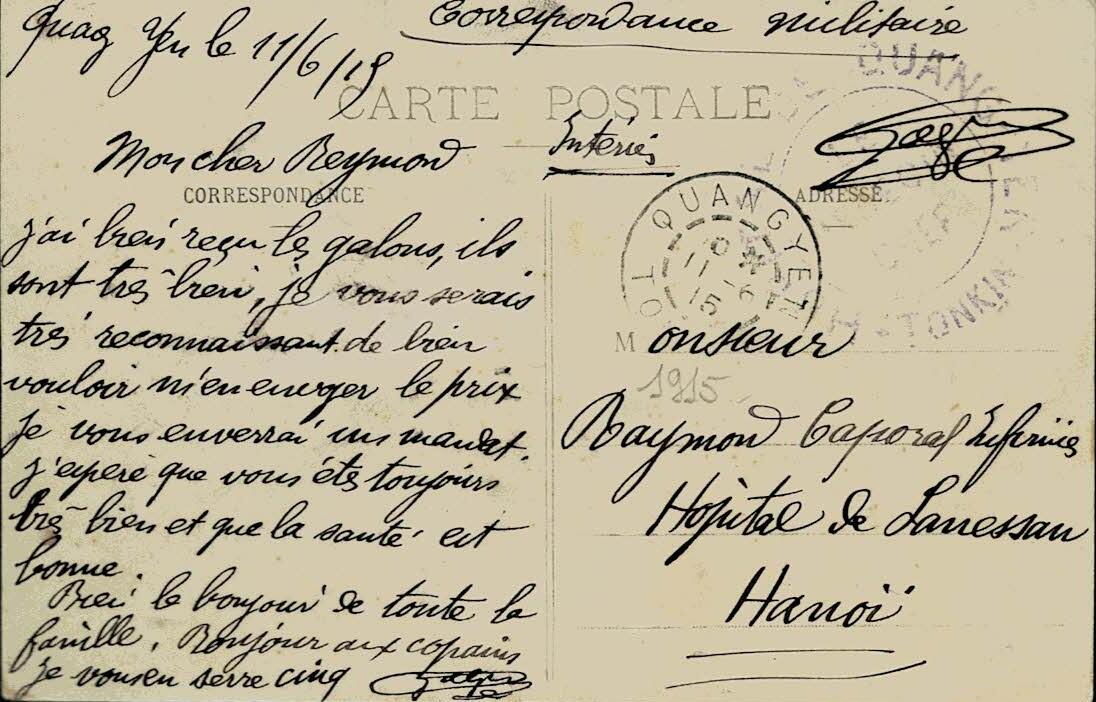 Quag Yen le 11/6/15
Correspondance militaire
CARTE POSTALE
Mon cher Reymond
CORRESPONDANCE
j'ai bien reçu les galons, ils
sont très bien, je vous serais
très reconnaissant de bien
vouloir m'en envoyer le prix
je vous enverrai un mandat.
j'espère que vous êtes toujours
très bien et que la santé est
bonne.
Bien le bonjour de toute la
famille. Bonjour aux copains
je vous en serre cinq
ADRESSE
QUANG YEN
TONKIN
QUANG-YEN
11 - 6
15
Monsieur
1915
Raymond Caporal Infirmier
Hôpital de Lanessan
Hanoï